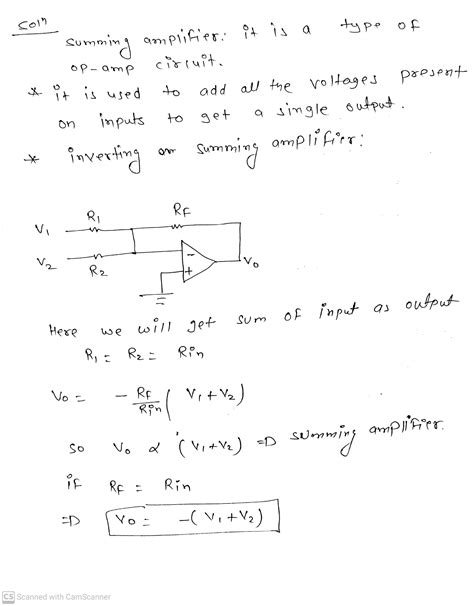 Soln
Summing amplifier: it is a type of
op-amp circuit.
* it is used to add all the voltages present
on inputs to get a single output.
* inverting or summing amplifier:
R1
RF
V1
V2
R2
-
+
Vo
Here we will get sum of input as output
R1 = R2 = Rin
Vo = - RF/Rin (V1+V2)
so Vo α (V1+V2) => summing amplifier.
if RF = Rin
=> Vo = -(V1+V2)
CS Scanned with CamScanner